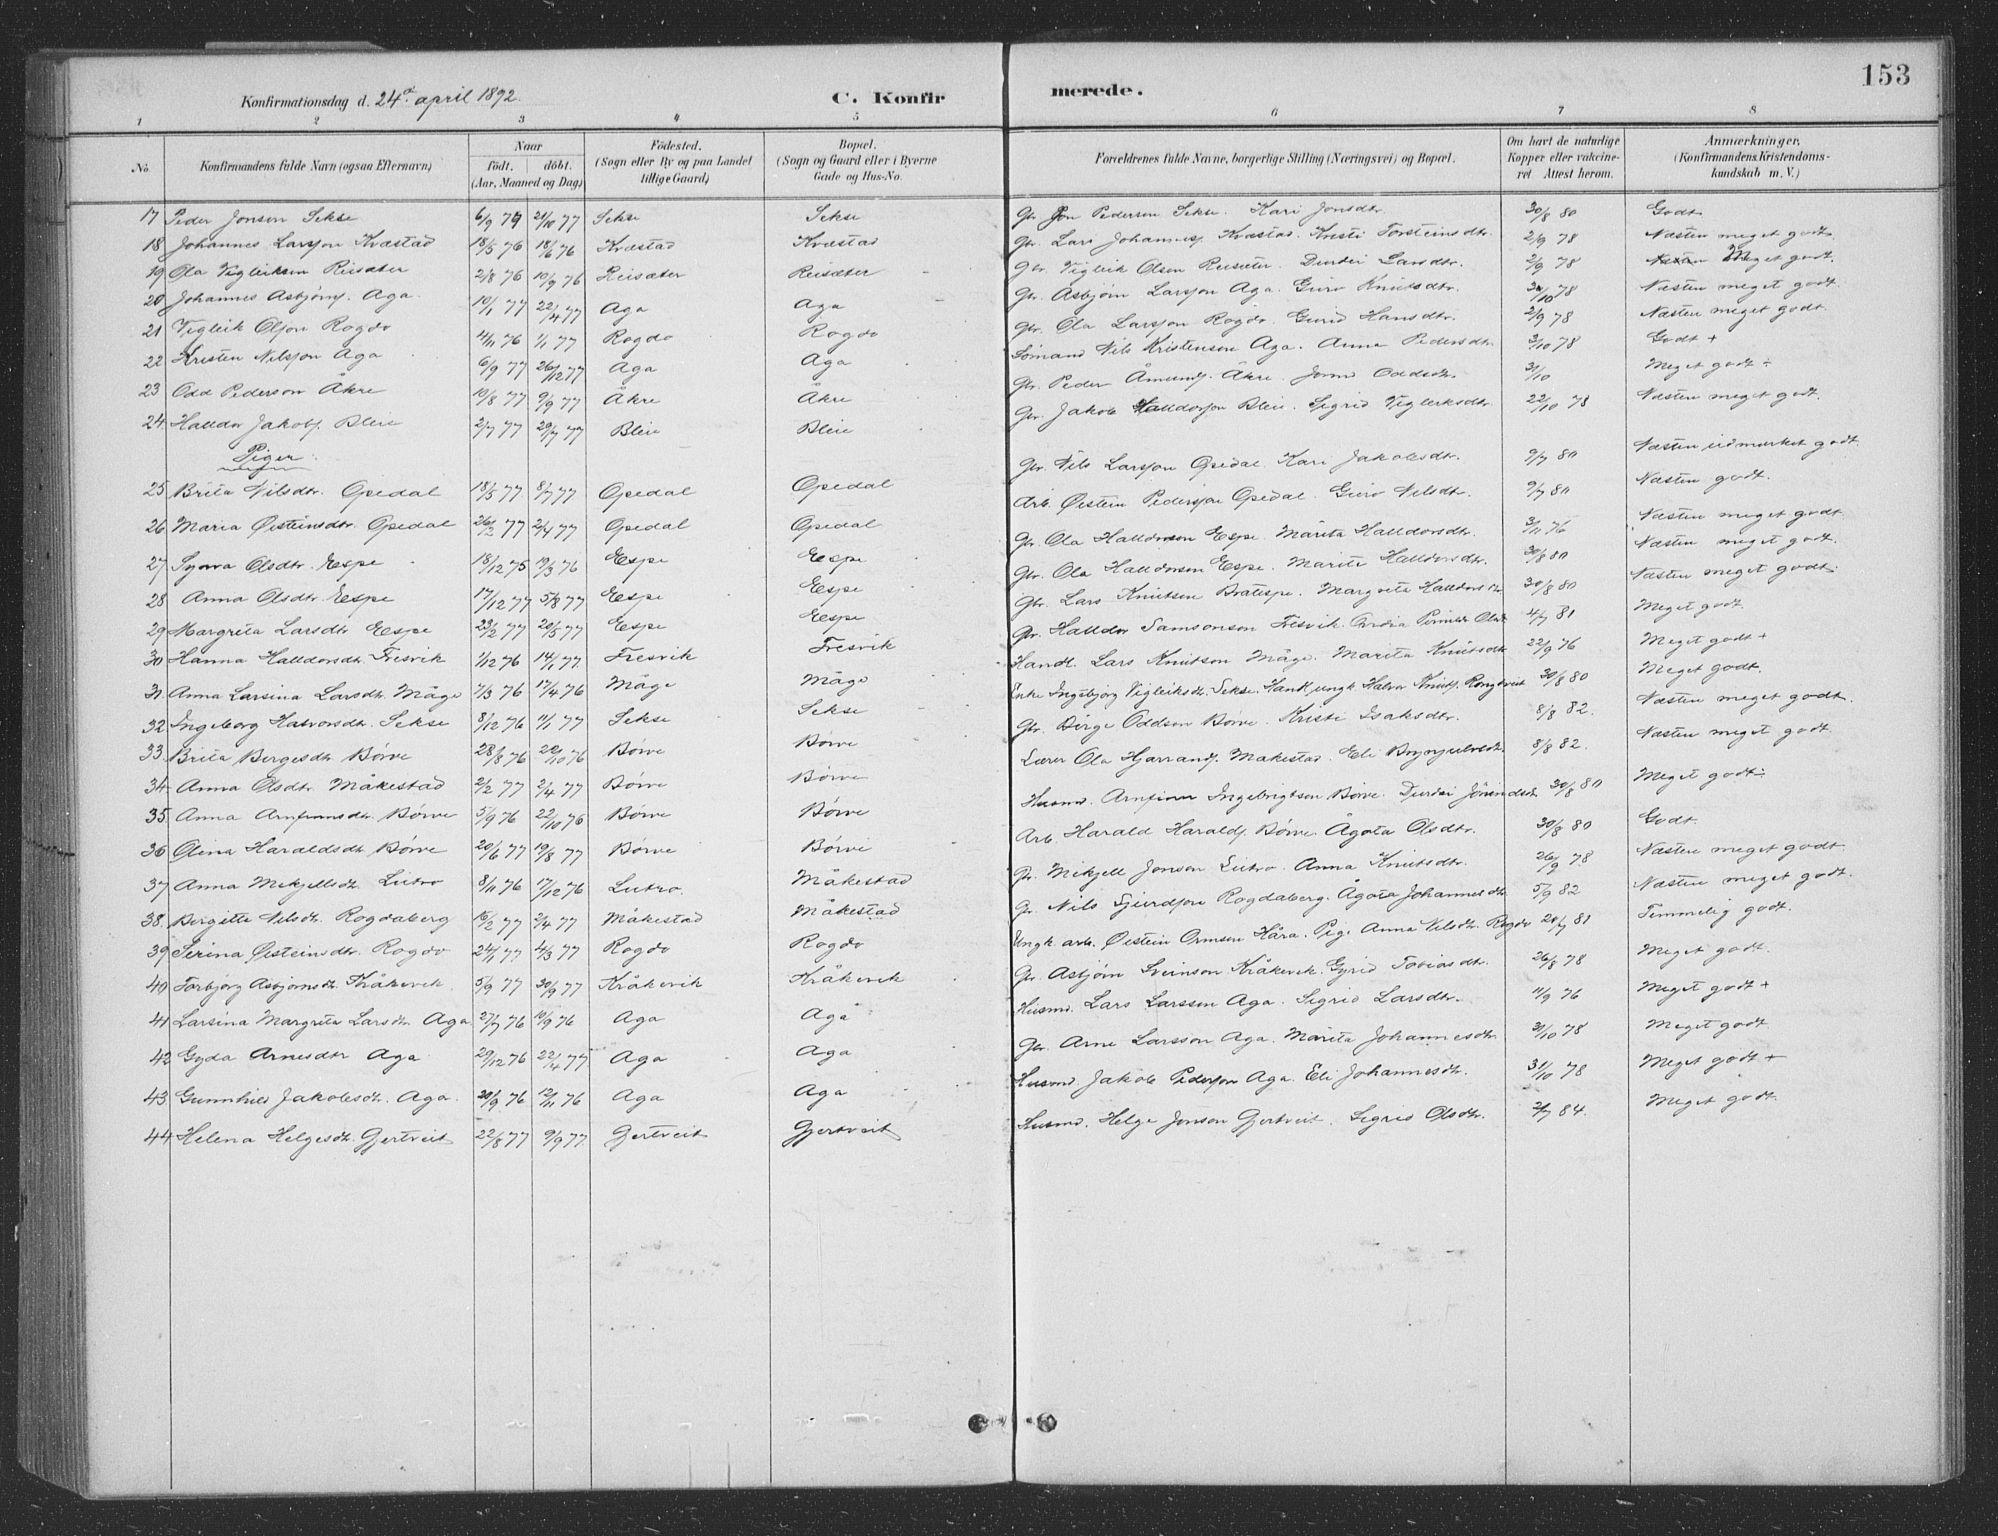 153
Konfirmationsdag d. 24de april 1892. C. Konfirmerede.
1 2 3 4 5 6 7 8
No. Konfirmandens fulde Navn (ogsaa Efternavn) Naar födt. döbt. (Aar, Maaned og Dag) Födested. (Sogn eller By og paa Landet tillige Gaard) Bopæl. (Sogn og Gaard eller i Byerne Gade og Hus-No. Forældrenes fulde Navne, borgerlige Stilling (Næringsvei) og Bopæl. Om havt de naturlige Kopper eller vakcineret Attest herom. Anmærkninger. (Konfirmandens Kristendomskundskab m. V.)
17 Peder Jonson Sekse 6/9 77 21/10 77 Sekse Sekse Gbr. Jon Pederson Sekse. Kari Jonsdtr. 30/8 80 Godt
18 Johannes Larsson Kvæstad 18/5 76 18/6 76 Kvæstad Kvæstad Gbr. Lars Johanness. Kvæstad. Kristi Torsteinsdtr. 2/9 78 Næsten meget godt
19 Ola Vigleiksen Reisæter 2/8 76 10/9 76 Reisæter Reisæter Gbr. Vigleik Olsen Reisæter. Durdei Larsdtr. 2/9 78 Meget godt.
20 Johannes Asbjörns. Aga 10/1 77 22/4 77 Aga Aga Gbr. Asbjörn Larsson Aga. Guro Knutsdtr. 30/10 78 Næsten meget godt
21 Vigleik Olson Rogdo 4/11 76 1/1 77 Rogdo Rogdo Gbr. Ola Larsson Rogdo. Gurid Hansdtr. 2/9 78 Næsten meget godt.
22 Kristen Nilsson Aga 6/9 77 26/12 77 Aga Aga Sömand Nils Kristensen Aga. Anna Pedersdtr. 3/10 78 Godt +
23 Odd Pederson Åkre 10/8 77 9/9 77 Åkre Åkre Gbr. Peder Åmunds. Åkre. Oddsdtr. 31/10 Meget godt ÷
24. Halldor Jakobs. Bleie 2/7 77 29/7 77 Bleie Bleie Gbr. Jakob Halldorson Bleie. Sigrid Vigleiksdtr. 22/10 78 Næsten meget godt.
Piger.
25 Brita Nilsdtr. Opedal 18/5 77 8/7 77 Opedal Opedal Gbr. Nils Larsson Opedal. Kari Jakobsdtr. 9/7 80 Næsten udmærket godt.
26 Maria Östeinsdtr. Opedal 26/2 77 2/4 77 Opedal Opedal Arb. Östein Pederson Opedal. Guro Nilsdtr. 9/7 80 Næsten godt.
27 Synva Olsdtr. Espe 18/12 75 19/3 76 Espe Espe Gbr. Ola Halldorson Espe. Märita Halldorsdtr. 3/11 76 Næsten meget godt.
28 Anna Olsdtr. Espe 17/12 77 5/8 77 Espe Espe Gbr. Ola Halldorsen Espe. Märite Halldorsdtr. 30/8 80 Næsten meget godt.
29 Margreta Larsdtr. Espe 23/2 77 20/5 77 Espe Espe Gbr. Lars Knutsen Bråtespe. Margreta Halldorsdtr. 30/8 80 Næsten meget godt.
30 Hanna Halldorsdtr. Fresvik 1/12 76 14/1 77 Fresvik Fresvik Gbr. Halldor Samsonson Fresvik. 4/7 81 Meget godt
31 Anna Larsina Larsdtr. Måge 7/3 76 17/4 76 Måge Måge Handl. Lars Knutson Måge. Marita Knutsdtr. 22/9 76 Meget godt +
32 Ingeborg Halvorsdtr. Sekse 8/12 76 11/1 77 Sekse Sekse Enke Ingebjörg Vigleiksdtr. Sekse. Ungk. Halvor Knuts. 30/8 80 Meget godt.
33. Brita Bergesdtr. Börve 28/8 76 22/10 76 Börve Börve Gbr. Birge Oddson Börve. Kristi Isaksdtr. 8/8 82. Næsten meget godt.
34 Anna Olsdtr. Måkestad 2/2 77 2/4 77 Börve Börve Lærer Ola Hjarrands. Makestad. Eli Brynjulvsdtr. 8/8 82. Næsten meget godt
35 Anna Arnfinnsdtr. Börve 5/9 76 22/10 76 Börve Börve Husmd. Arnfinn Ingebrigtson Börve. Durdei Jörundsdtr. 30/8 80 Meget godt ÷
36 Olina Haraldsdtr. Börve 20/6 77 19/8 77 Börve Börve Arb. Harald Haralds. Börve. Ågota Olsdtr. 30/8 80 Godt.
37 Anna Mikjellsdtr. Lutro 8/11 76 17/12 76 Lutro. Måkestad Gbr. Mikjell Jonson Lutro. Anna Knutsdtr. 26/9 78 Næsten meget godt.
38. Bergitte Nilsdtr. Rogdaberg 16/2 77 2/4 77 Måkestad Måkestad Gbr. Nils Sjurdson Rogdaberg. Ågota Johannesdtr. 5/9 82 Næsten meget godt.
39 Serina Östeinsdtr. Rogdo 24/1 77 4/3 77 Rogdo Rogdo Ungk. arb. Östein Ormson Håra. Pige Anna Nilsdtr. Rogdo 81 Temmelig godt.
40 Torbjörg Asbjörnsdtr. Kråkevik. 5/9 77 30/9 77 Kråkevik Kråkevik Gbr. Asbjörn Sveinson Kråkevik. Gyrid Tobiasdtr. 26/8 78 Meget godt
41 Larsina Margreta Larsdtr. Aga 27/7 76 10/9 76 Aga Aga Husmd. Lars Larsson Aga. Sigrid Larsdtr. 11/9 76 Meget godt +
42 Gyda Arnesdtr Aga 29/12 76 22/4 77 Aga Aga Gbr. Arne Larsson Aga. Märita Johannesdtr. 31/10 78 Meget godt
43 Gunnhild Jakobsdtr. Aga. 20/9 76 12/11 76 Aga Aga Husmd. Jakob Pederson Aga. Eli Johannesdtr. 31/10 78 Meget godt +
44 Helena Helgesdtr. Gjertveit 22/8 77 9/9 77. Gjertveit Gjertveit Husmd. Helge Jonson Gjertveit. Sigrid Olsdtr. 84. Meget godt